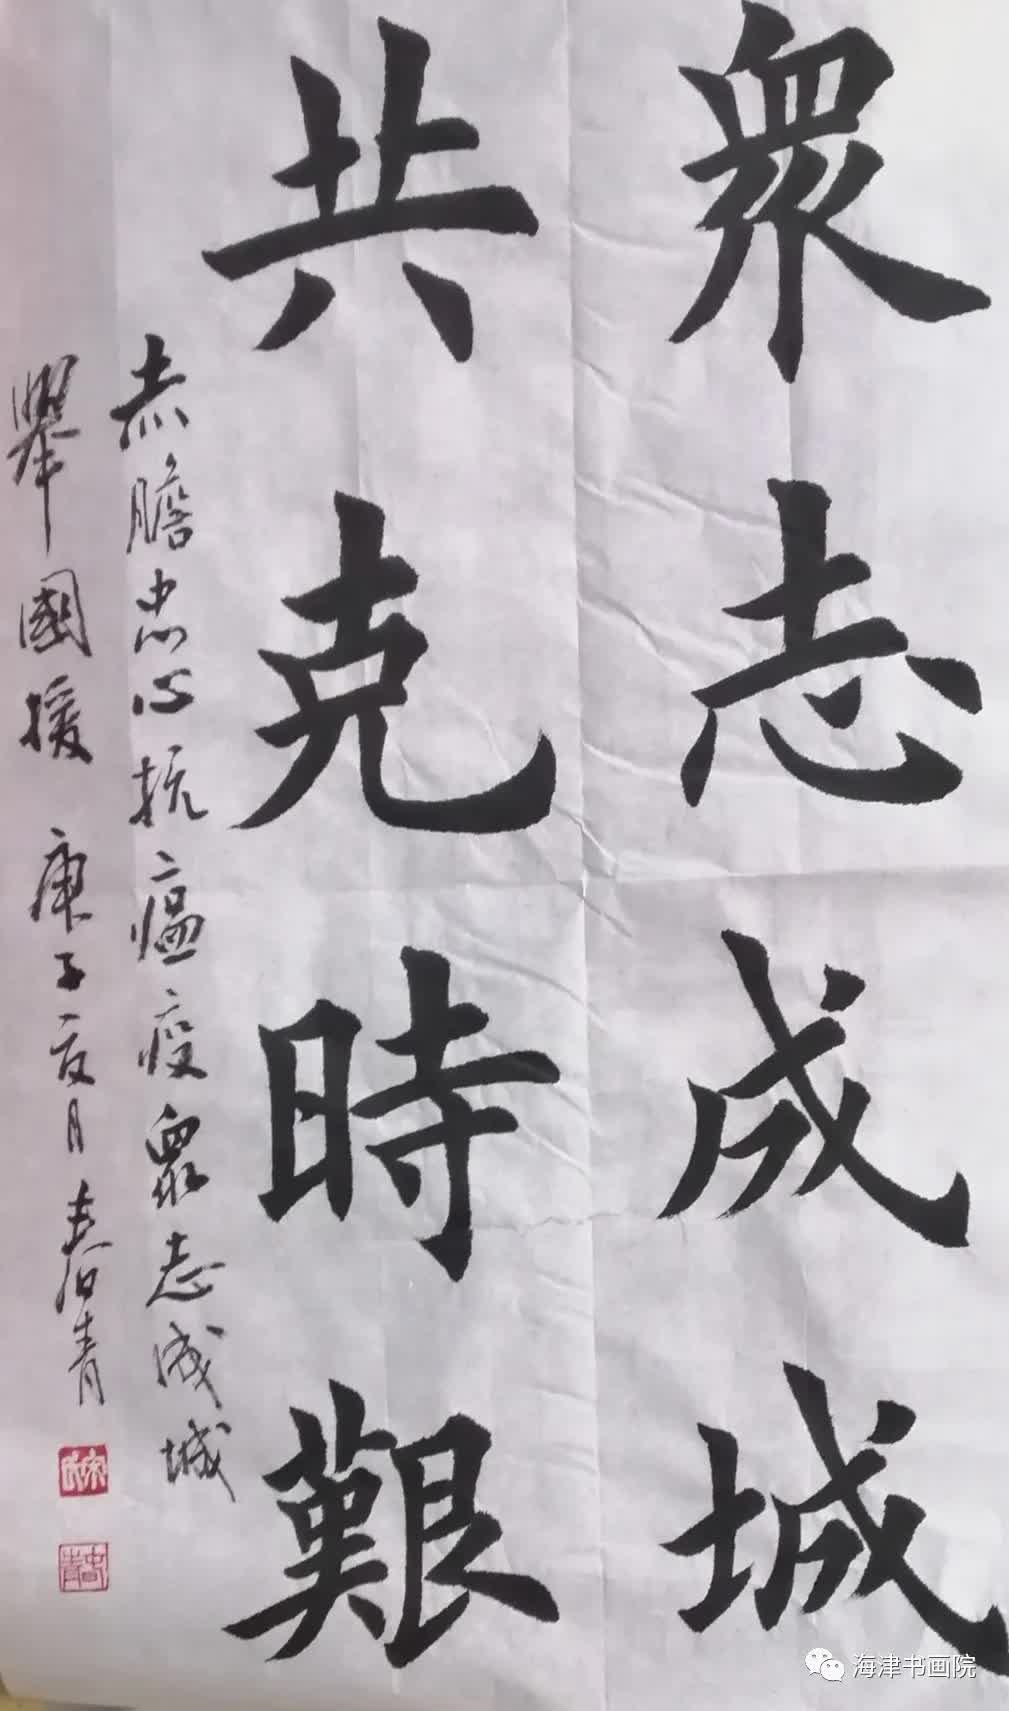 衆志成城
共克時艱
赤膽忠心抗瘟疫衆志成城
舉國援 庚子夏月春青
海津书画院